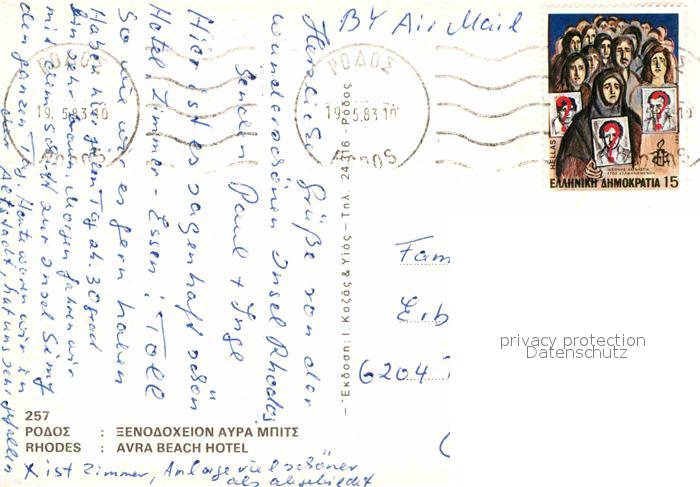 BY Air Mail
Herzliche Grüße von der
wunderschönen Insel Rhodos
senden Paul + Inge
Hier ist es sagenhaft schön
Hotel, Zimmer - Essen: Toll
So wie wir es gern haben
Haben hier jeden Tag ab. 30 grad
Morgen fahren wir
mit dem Schiff zur Insel Simi
den ganzen Tag. Heute waren wir in
der Altstadt, hat uns sehr gefallen
X ist Zimmer, Anlage viel schöner
als abgebildet
257
ΡΟΔΟΣ : ΞΕΝΟΔΟΧΕΙΟΝ ΑΥΡΑ ΜΠΙΤΣ
RHODES : AVRA BEACH HOTEL
— Έκδοση: Ι. Κοζάς & Υιός – Τηλ. 24316 - Ρόδος —
ΡΟΔΟΣ
19.5.83.10
RODOS
ΡΟΔΟΣ
19.5.83.10
RODOS
HELLAS
ΕΛΛΗΝΙΚΗ ΔΗΜΟΚΡΑΤΙΑ 15
Fam
Eib
6204
privacy protection
Datenschutz